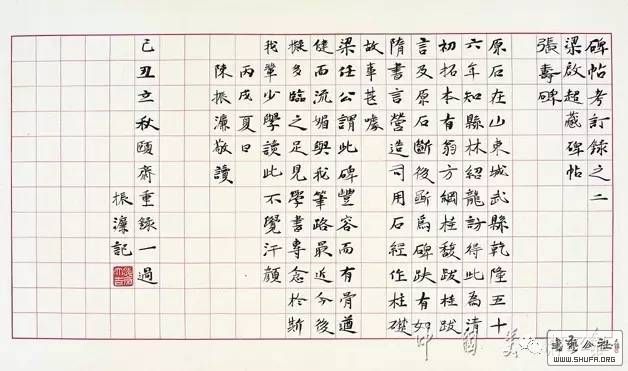 碑帖考訂錄之二
梁啟超藏碑帖
張壽碑
原石在山東城武縣乾隆五十
六年知縣林紹龍訪得此為清
初拓本有翁方綱桂馥跋桂跋
言及原石斷後斷為碑趺有如
隋書言營造司用石經作柱礎
故事甚噱
梁任公謂此碑豐容而有骨遒
健而流媚與我筆路最近今後
擬多臨之足見學書專念於斯
我輩少學讀此不覺汗顏
丙戌夏日
陳振濂敬讀
己丑立秋頤齋重錄一過
振濂記
中國美
WWW.SHUFA.ORG